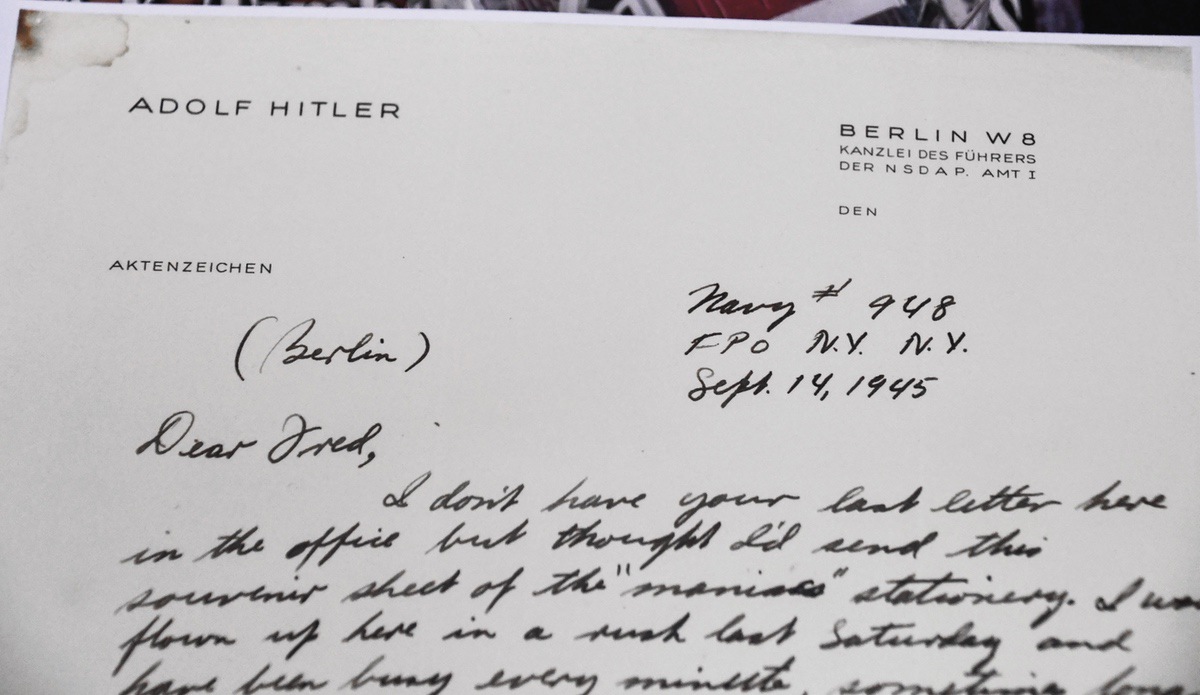 ADOLF HITLER
BERLIN W 8
KANZLEI DES FÜHRERS
DER NSDAP. AMT I
DEN
AKTENZEICHEN
Navy # 948
FPO N.Y. N.Y.
Sept. 14, 1945
(Berlin)
Dear Fred,
I don't have your last letter here
in the office but thought I'd send this
souvenir sheet of the "maniacs" stationery. I
flown up here in a rush last Saturday and
have been busy every minute, sometime